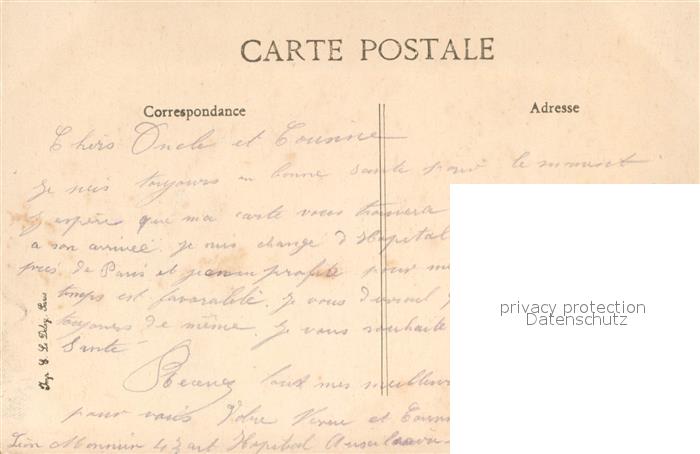 CARTE POSTALE
Correspondance
Adresse
Chers Oncle et Cousine
Je suis toujours en bonne santé pour le moment
J espère que ma carte vous trouvera
a son arrivée. Je suis changé d Hopital
près de Paris et profite pour
temps est Je vous
toujours de même. Je vous souhaite
Santé
Recevez tout mes meilleurs
pour vous Votre Neveu et
Léon Monnier 43 art Hopital
Imp. E. Le Deley, Paris
privacy protection
Datenschutz